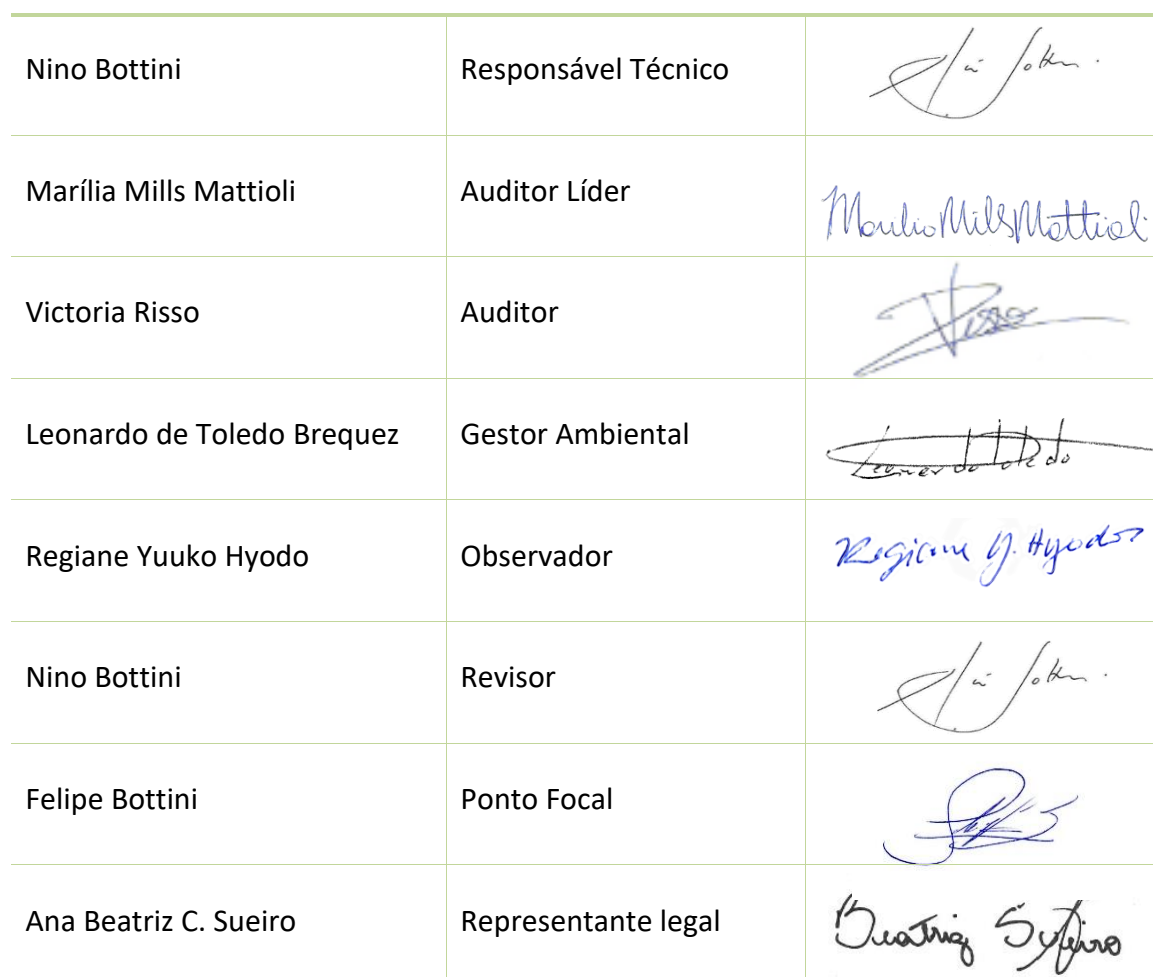 Nino Bottini Responsável Técnico
Marília Mills Mattioli Auditor Líder Marília Mills Mattioli
Victoria Risso Auditor Risso
Leonardo de Toledo Brequez Gestor Ambiental Leonardo Toledo
Regiane Yuuko Hyodo Observador Regiane Y. Hyodo
Nino Bottini Revisor
Felipe Bottini Ponto Focal
Ana Beatriz C. Sueiro Representante legal Beatriz Sueiro